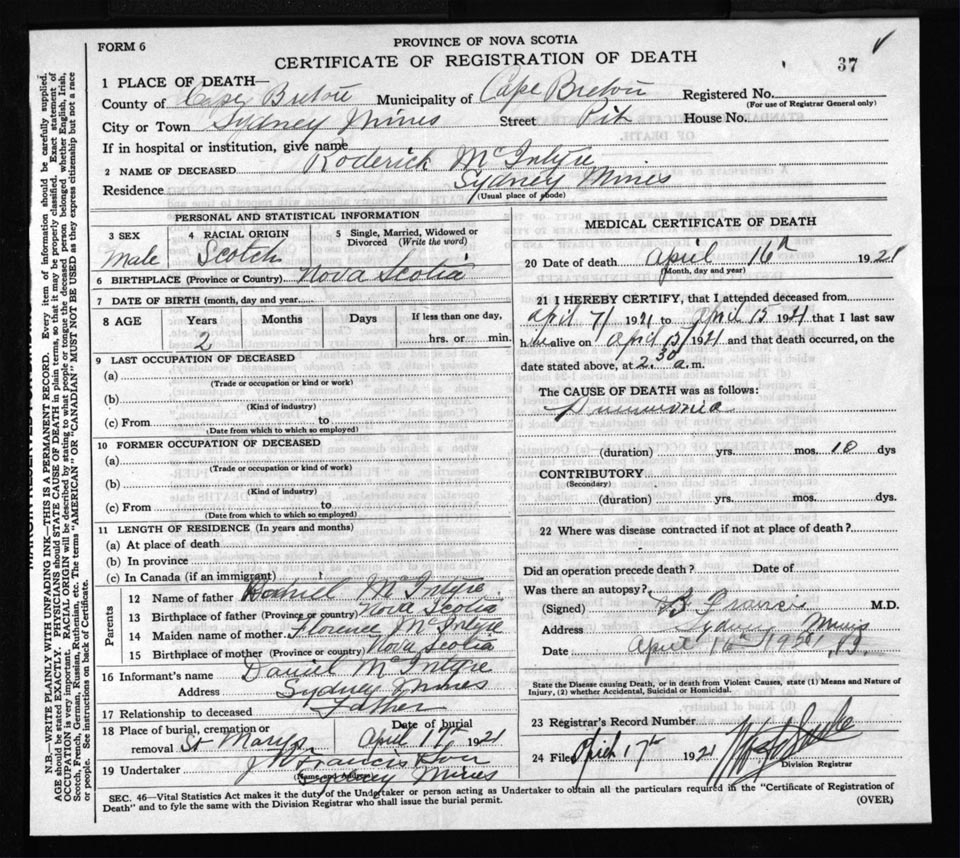 FORM 6
PROVINCE OF NOVA SCOTIA
CERTIFICATE OF REGISTRATION OF DEATH
37
1 PLACE OF DEATH—
County of Cape Breton Municipality of Cape Breton Registered No.
(For use of Registrar General only)
City or Town Sydney Mines Street Pit House No.
If in hospital or institution, give name
2 NAME OF DECEASED Roderick McIntyre
Residence Sydney Mines
(Usual place of abode)
PERSONAL AND STATISTICAL INFORMATION
3 SEX Male
4 RACIAL ORIGIN Scotch
5 Single, Married, Widowed or Divorced (Write the word)
6 BIRTHPLACE (Province or Country) Nova Scotia
7 DATE OF BIRTH (month, day and year)
8 AGE Years 2 Months Days If less than one day, hrs. or min.
9 LAST OCCUPATION OF DECEASED
(a)
(Trade or occupation or kind or work)
(b)
(Kind of industry)
(c) From to
(Date from which to which so employed)
10 FORMER OCCUPATION OF DECEASED
(a)
(Trade or occupation or kind of work)
(b)
(Kind of industry)
(c) From to
(Date from which to which so employed)
11 LENGTH OF RESIDENCE (In years and months)
(a) At place of death
(b) In province
(c) In Canada (if an immigrant)
Parents
12 Name of father Daniel McIntyre
13 Birthplace of father (Province or country) Nova Scotia
14 Maiden name of mother Florence McIntyre
15 Birthplace of mother (Province or country) Nova Scotia
16 Informant's name Daniel McIntyre
Address Sydney Mines
17 Relationship to deceased Father
18 Place of burial, cremation or removal St Marys Date of burial April 17th 1921
19 Undertaker J W Francis
(Name and Address)
Sydney Mines
MEDICAL CERTIFICATE OF DEATH
20 Date of death April 16th 1921
(Month, day and year)
21 I HEREBY CERTIFY, that I attended deceased from
April 7 1921 to April 15 1921 that I last saw
him alive on April 15 1921 and that death occurred, on the
date stated above, at 2.30 a. m.
The CAUSE OF DEATH was as follows:
Pneumonia
(duration) yrs. mos. 10 dys
CONTRIBUTORY
(Secondary)
(duration) yrs. mos. dys.
22 Where was disease contracted if not at place of death?
Did an operation precede death? Date of
Was there an autopsy?
(Signed) B Francis M.D.
Address Sydney Mines
Date April 16th 1921
State the Disease causing Death, or in death from Violent Causes, state (1) Means and Nature of
Injury, (2) whether Accidental, Suicidal or Homicidal.
23 Registrar's Record Number
24 Filed April 17th 1921
Division Registrar
SEC. 46—Vital Statistics Act makes it the duty of the Undertaker or person acting as Undertaker to obtain all the particulars required in the "Certificate of Registration of
Death" and to fyle the same with the Division Registrar who shall issue the burial permit.
(OVER)
N.B.—WRITE PLAINLY WITH UNFADING INK—THIS IS A PERMANENT RECORD. Every item of information should be carefully supplied.
AGE should be stated EXACTLY. PHYSICIANS should STATE CAUSE OF DEATH in plain terms, so that it may be properly classified. Exact statement of
OCCUPATION is very important. RACIAL ORIGIN will be described by stating to what people or tongue the deceased person belonged, whether English, Irish,
Scotch, French, German, Russian, Ruthenian, etc. The terms "AMERICAN" OR "CANADIAN" MUST NOT BE USED as they express citizenship but not a race
or people. See instructions on back of Certificate.